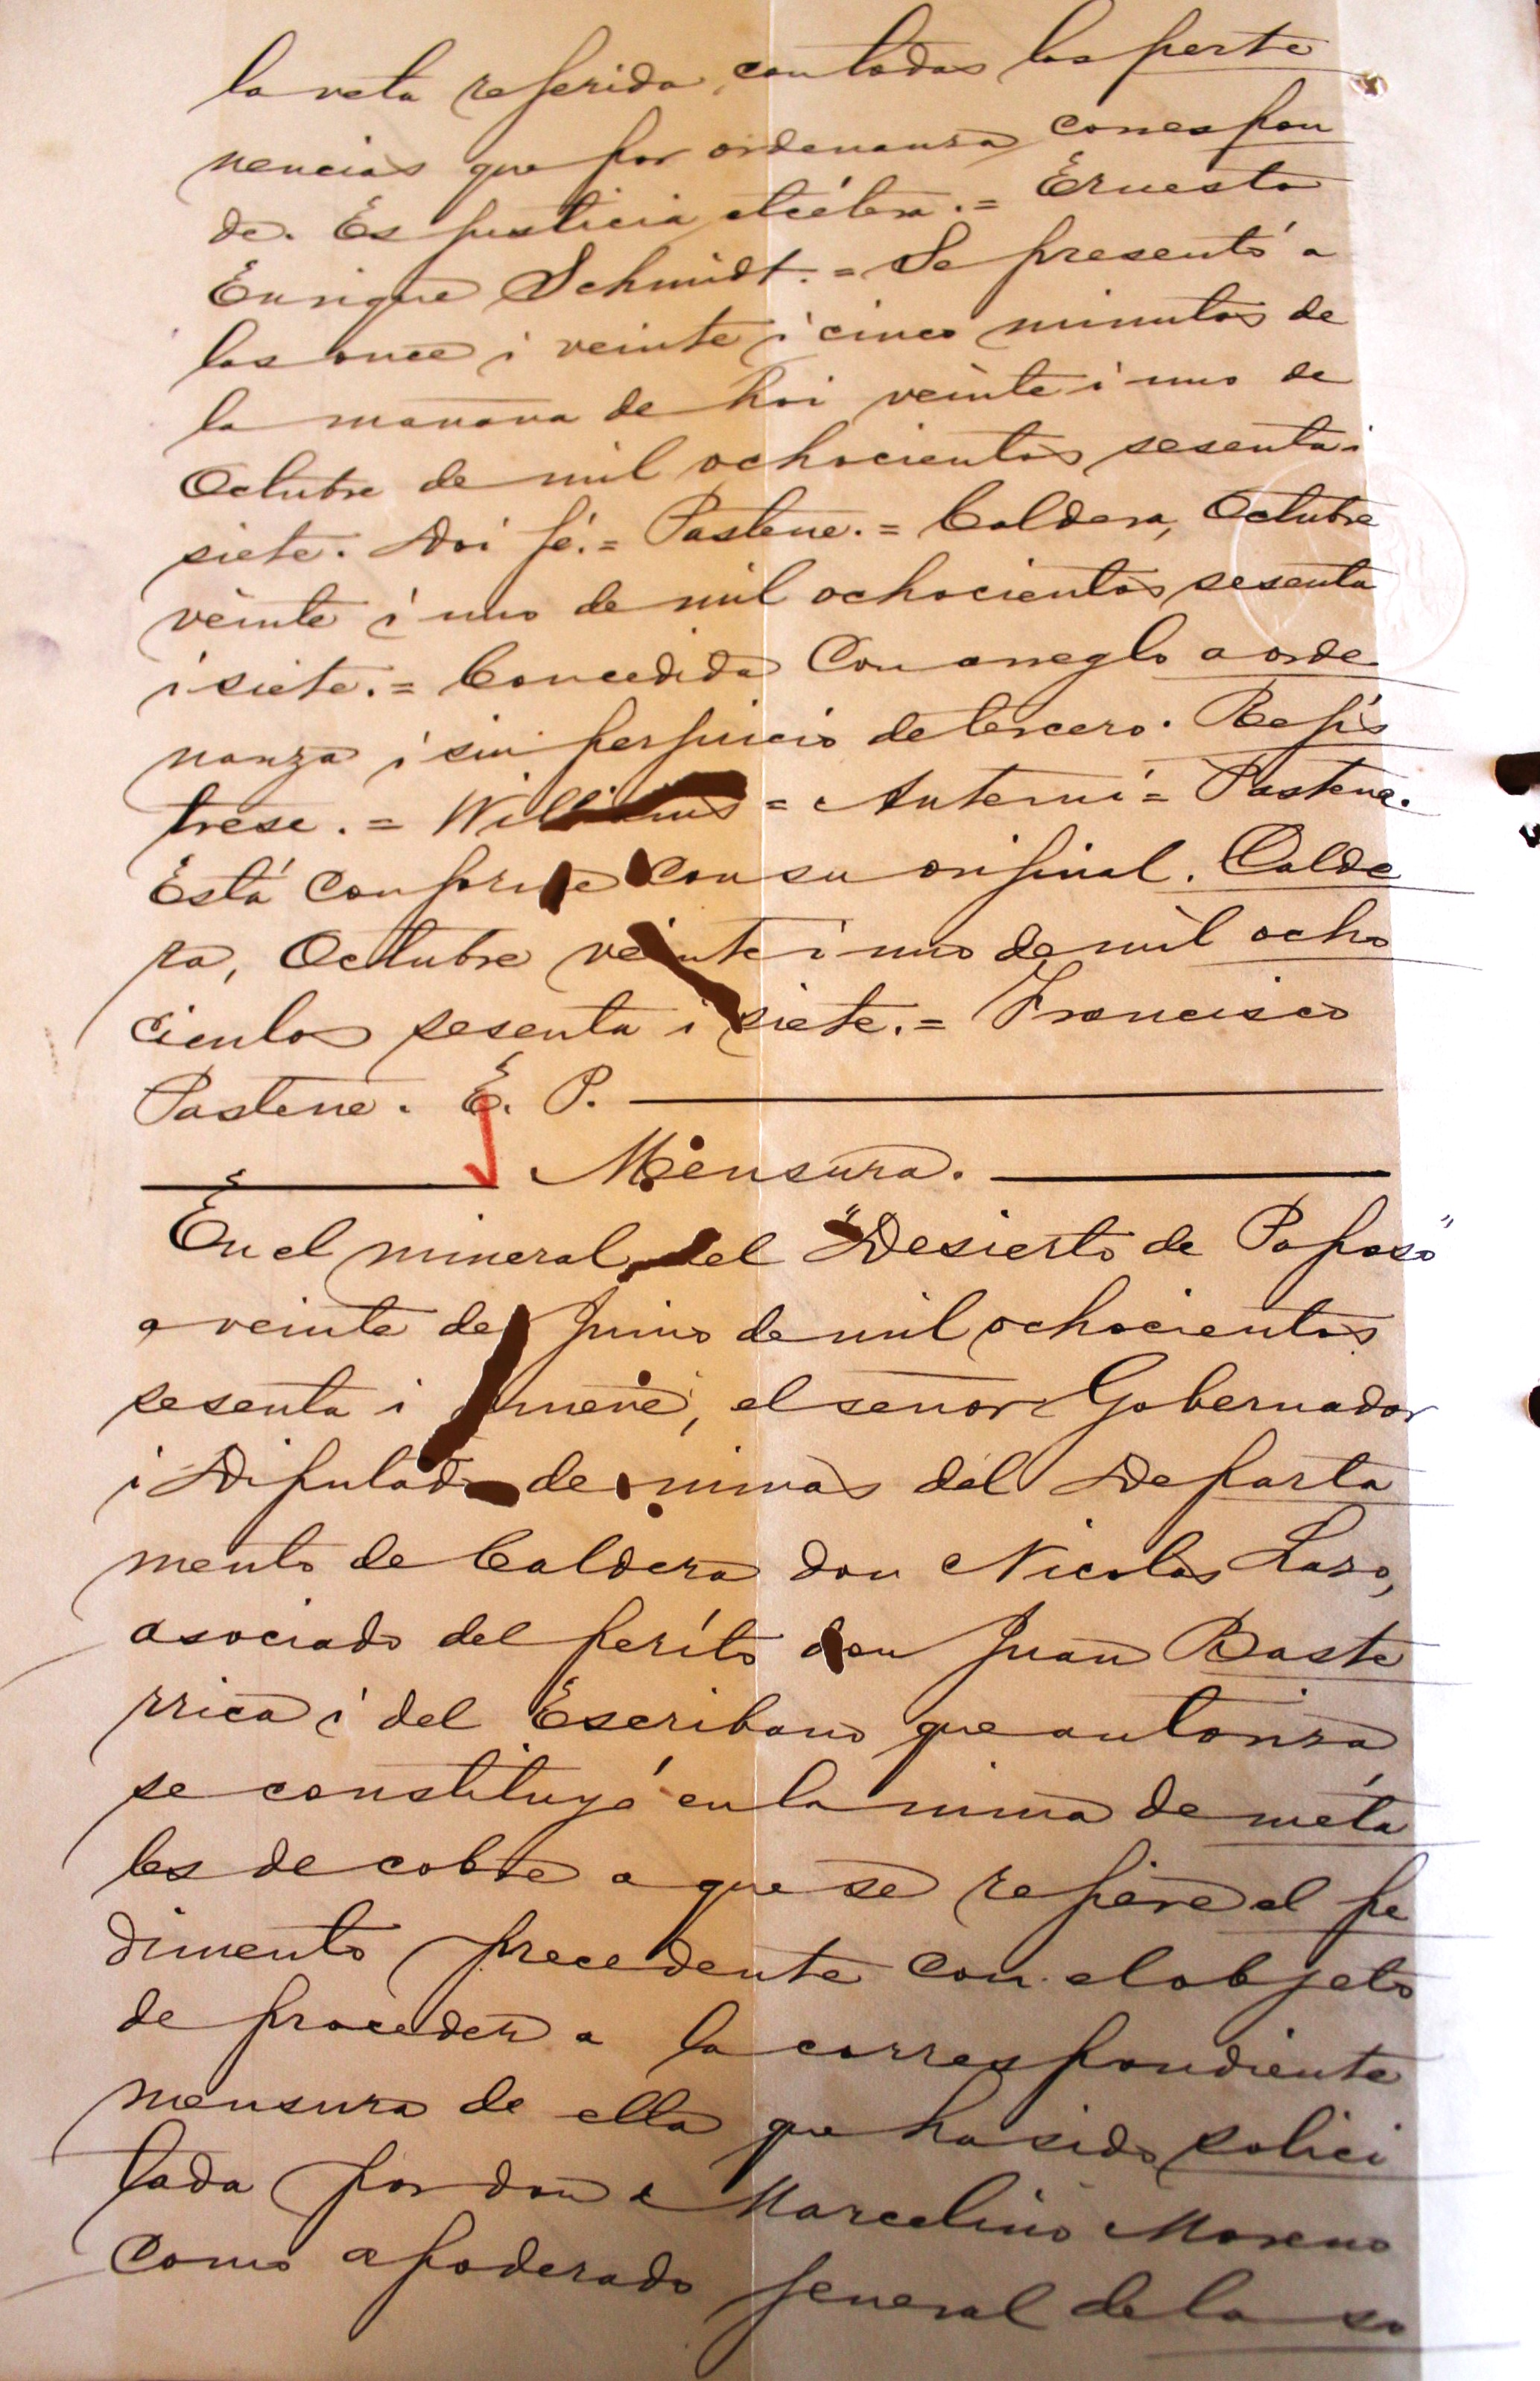 la veta referida, con todas las perte
nencias que por ordenanza correspon
de. Es justicia etcétera. = Ernesto
Enrique Schmidt. = Se presentó a
las once i veinte i cinco minutos de
la manana de hoi veinte i uno de
Octubre de mil ochocientos sesenta i
siete. Doi fé. = Pastene. = Caldera, Octubre
veinte i uno de mil ochocientos sesenta
i siete. = Concedida con arreglo a orde
nanza i sin perjuicio de tercero. Rejís
trese. = Williams = Antemi = Pastene.
Está conforme con su orijinal. Calde
ra, Octubre veinte i uno de mil ocho
cientos sesenta i siete. = Francisco
Pastene. E. P.
Mensura.
En el mineral del "Desierto de Paposo"
a veinte de Junio de mil ochocientos
sesenta i nueve, el señor Gobernador
i Diputado de minas del Departa
mento de Caldera don Nicolas Laso,
asociado del períto don Juan Baste
rrica i del Escribano que autoriza
se constituyó en la mina de meta
les de cobre a que se refiere el pe
dimento precedente con el objeto
de proceder a la correspondiente
mensura de ella que ha sido solici
tada por don Marcelino Moreno
como apoderado jeneral de la so